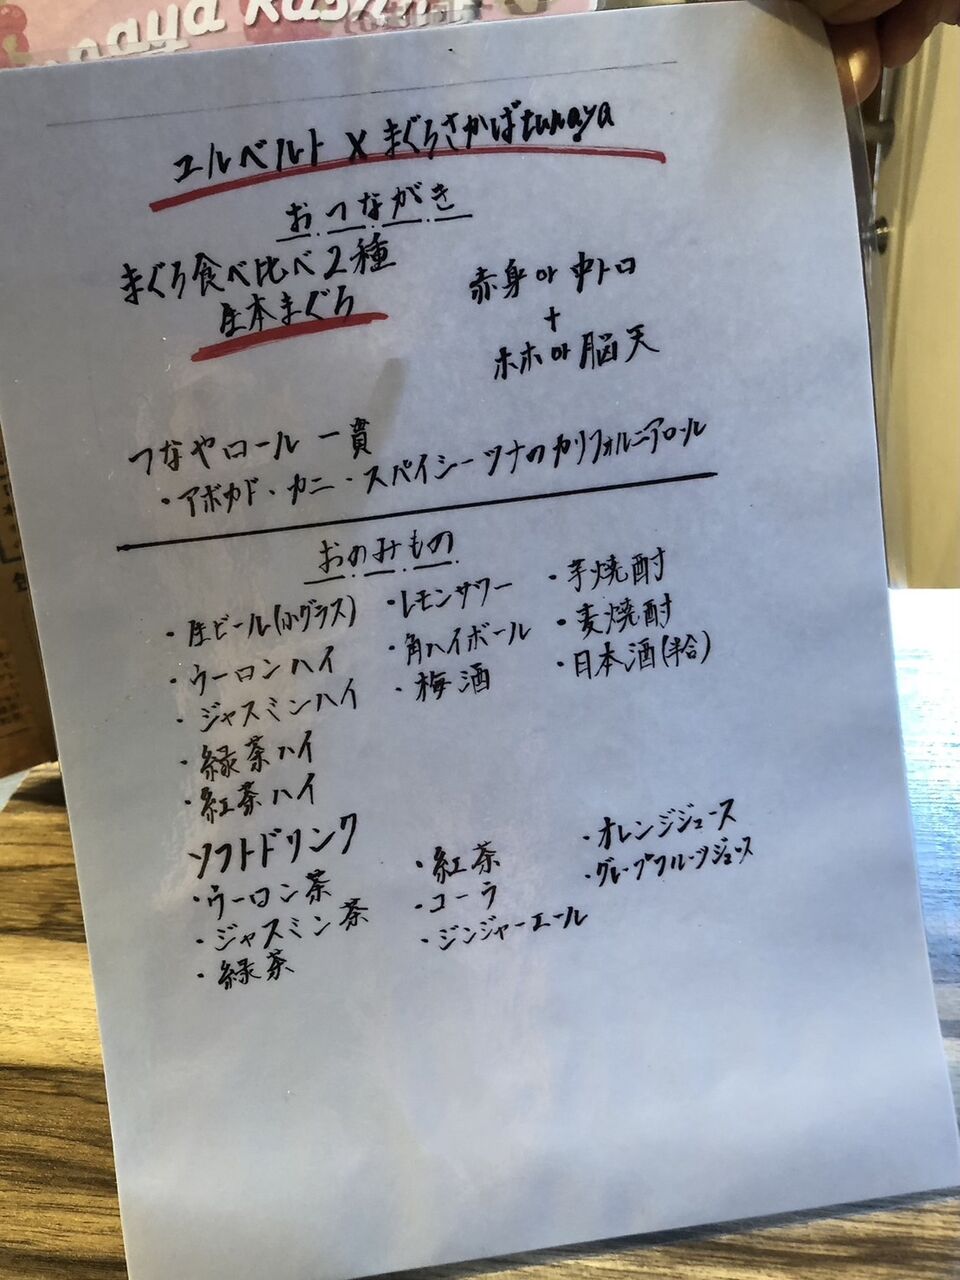 naya Kashi
ユルベルト × まぐろさかばtunaya
おつながき
まぐろ食べ比べ2種
生本まぐろ
赤身or中トロ
+
ホホor脳天
つなやロール 一貫
・アボカド・カニ・スパイシーツナのカリフォルニアロール
おのみもの
・生ビール(小グラス)
・ウーロンハイ
・ジャスミンハイ
・緑茶ハイ
・紅茶ハイ
・レモンサワー
・角ハイボール
・梅酒
・芋焼酎
・麦焼酎
・日本酒(半合)
ソフトドリンク
・ウーロン茶
・ジャスミン茶
・緑茶
・紅茶
・コーラ
・ジンジャーエール
・オレンジジュース
・グレープフルーツジュース